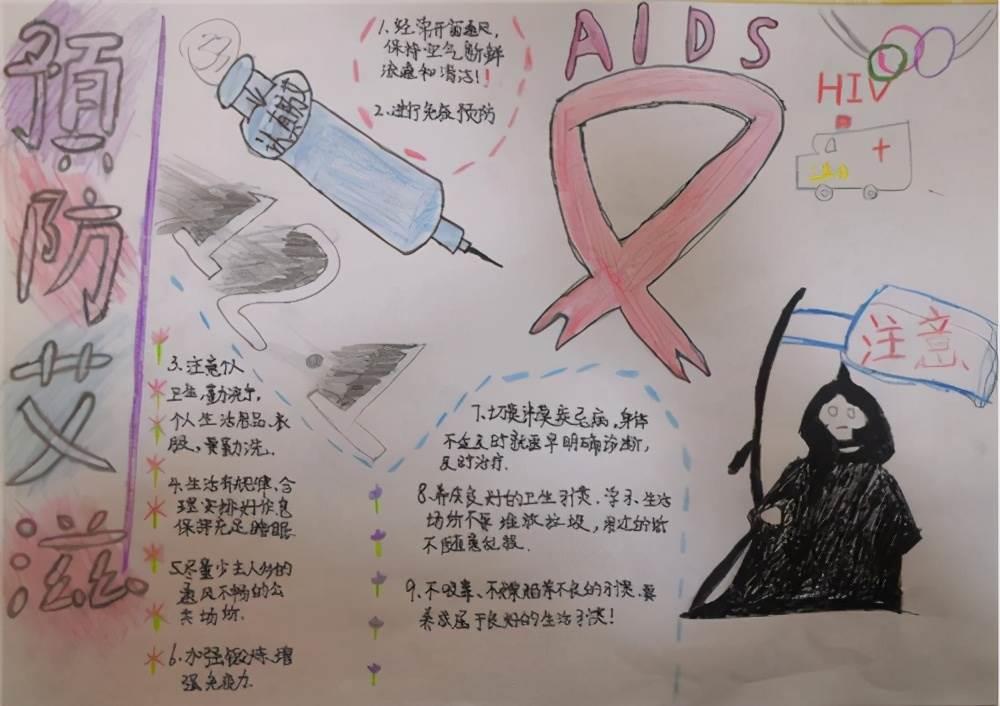 预防艾滋
AIDS
HIV
认真防艾
1.经常开窗通风,
保持空气新鲜
流通和清洁!!
2.进行免疫预防
注意
3.注意个人
卫生,勤洗手,
个人生活用品、衣
服,要勤洗.
4.生活有规律、合
理安排好作息
保持充足睡眠
5.尽量少去人多的
通风不畅的公
共场所.
6.加强锻炼、增
强免疫力.
7.切莫讳莫疾忌病,身体
不适及时就医早明确诊断,
及时治疗.
8.养成良好的卫生习惯、学习、生活
场所不要堆放垃圾,用过的
不随意乱扔.
9.不吸毒、不嫖娼等不良的习惯、要
养成属于良好的生活习惯!